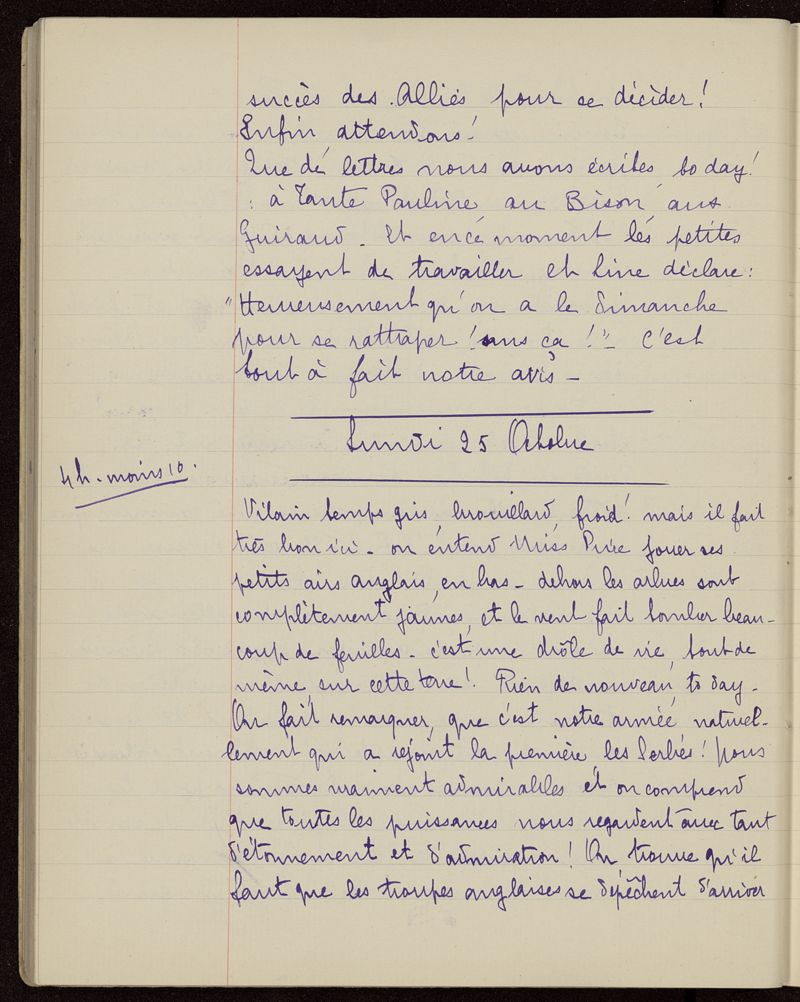 succès des Alliés pour se décider !
Enfin, attendons !
Que de lettres nous avons écrites to day !
: à Tante Pauline au Bison, aux
Guiraud - Et en ce moment les petites
essayent de travailler et Line déclare :
"Heureusement qu'on a le dimanche
pour se rattraper ! sans ça !" - C'est
tout à fait notre avis -
Lundi 25 Octobre
4 h. moins 10.
Vilain temps gris, brouillard, froid ! mais il fait
très bon ici - on entend Miss Prire jouer ses
petits airs anglais, en bas - dehors les arbres sont
complètement jaunes, et le vent fait tomber beau-
coup de feuilles - c'est une drôle de vie, tout de
même, sur cette terre ! Rien de nouveau, to day -
On fait remarquer, que c'est notre armée, naturel-
lement qui a rejoint la première, les Serbes ! Nous
sommes vraiment admirables et on comprend
que toutes les puissances nous regardent avec tant
d'étonnement et d'admiration ! On trouve qu'il
faut que les troupes anglaises se dépêchent d'arriver